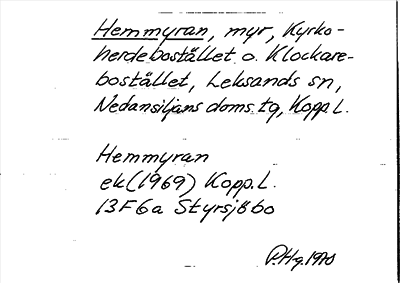 Hemmyran, myr, Kyrko-
herdebostället o. Klockare-
bostället, Leksands sn,
Nedansiljans doms tg, Kopp.L.
Hemmyran
ek (1969) Kopp.L.
13F6a Styrsjöbo
P.Hg. 1970